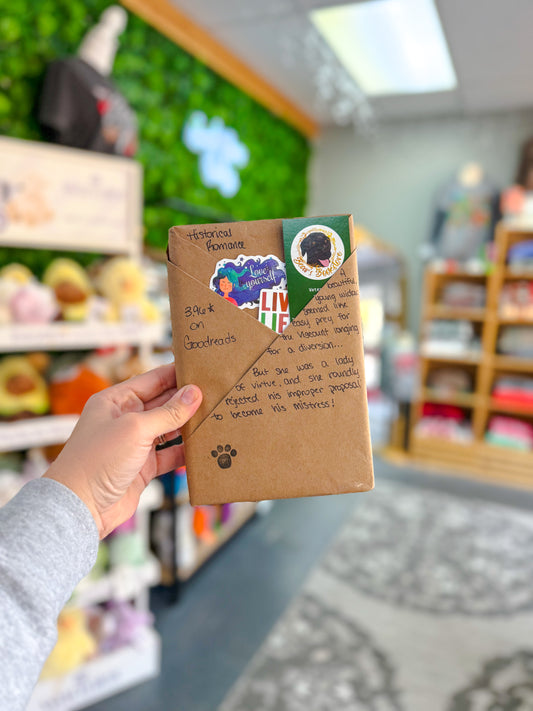 Historical
Romance
3.96★
on
Goodreads
Love
yourself
LIVE
Bear's
Bookstore
A
beautiful
young widow
seemed like
easy prey for
the viscount longing
for a diversion...
But she was a lady
of virtue, and she roundly
rejected his improper proposal
to become his mistress!